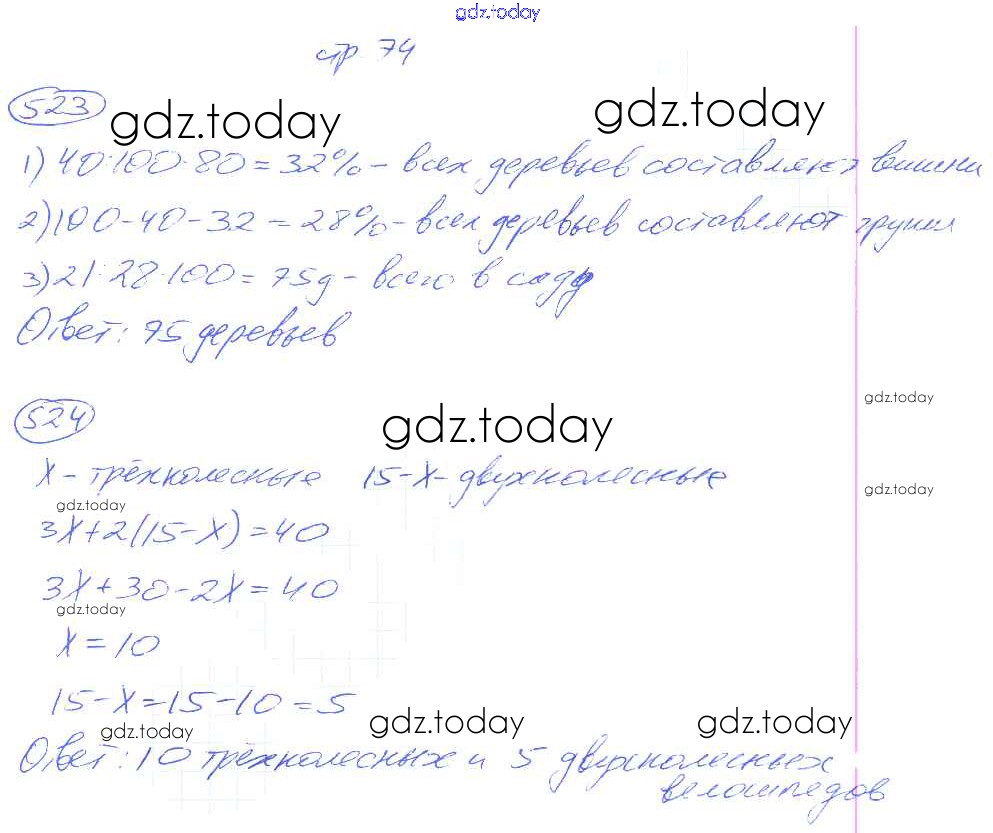 gdz.today
стр 74
523
gdz.today gdz.today
1) 40:100·80=32% - всех деревьев составляют вишни
2) 100-40-32=28% - всех деревьев составляют груши
3) 21:28·100=75д - всего в саду
Ответ: 75 деревьев
gdz.today
524
gdz.today
x - трёхколесные 15-x - двухколесные
gdz.today
gdz.today
3x+2(15-x)=40
3x+30-2x=40
gdz.today
x=10
15-x=15-10=5
gdz.today gdz.today gdz.today
Ответ: 10 трёхколесных и 5 двухколесных
велосипедов